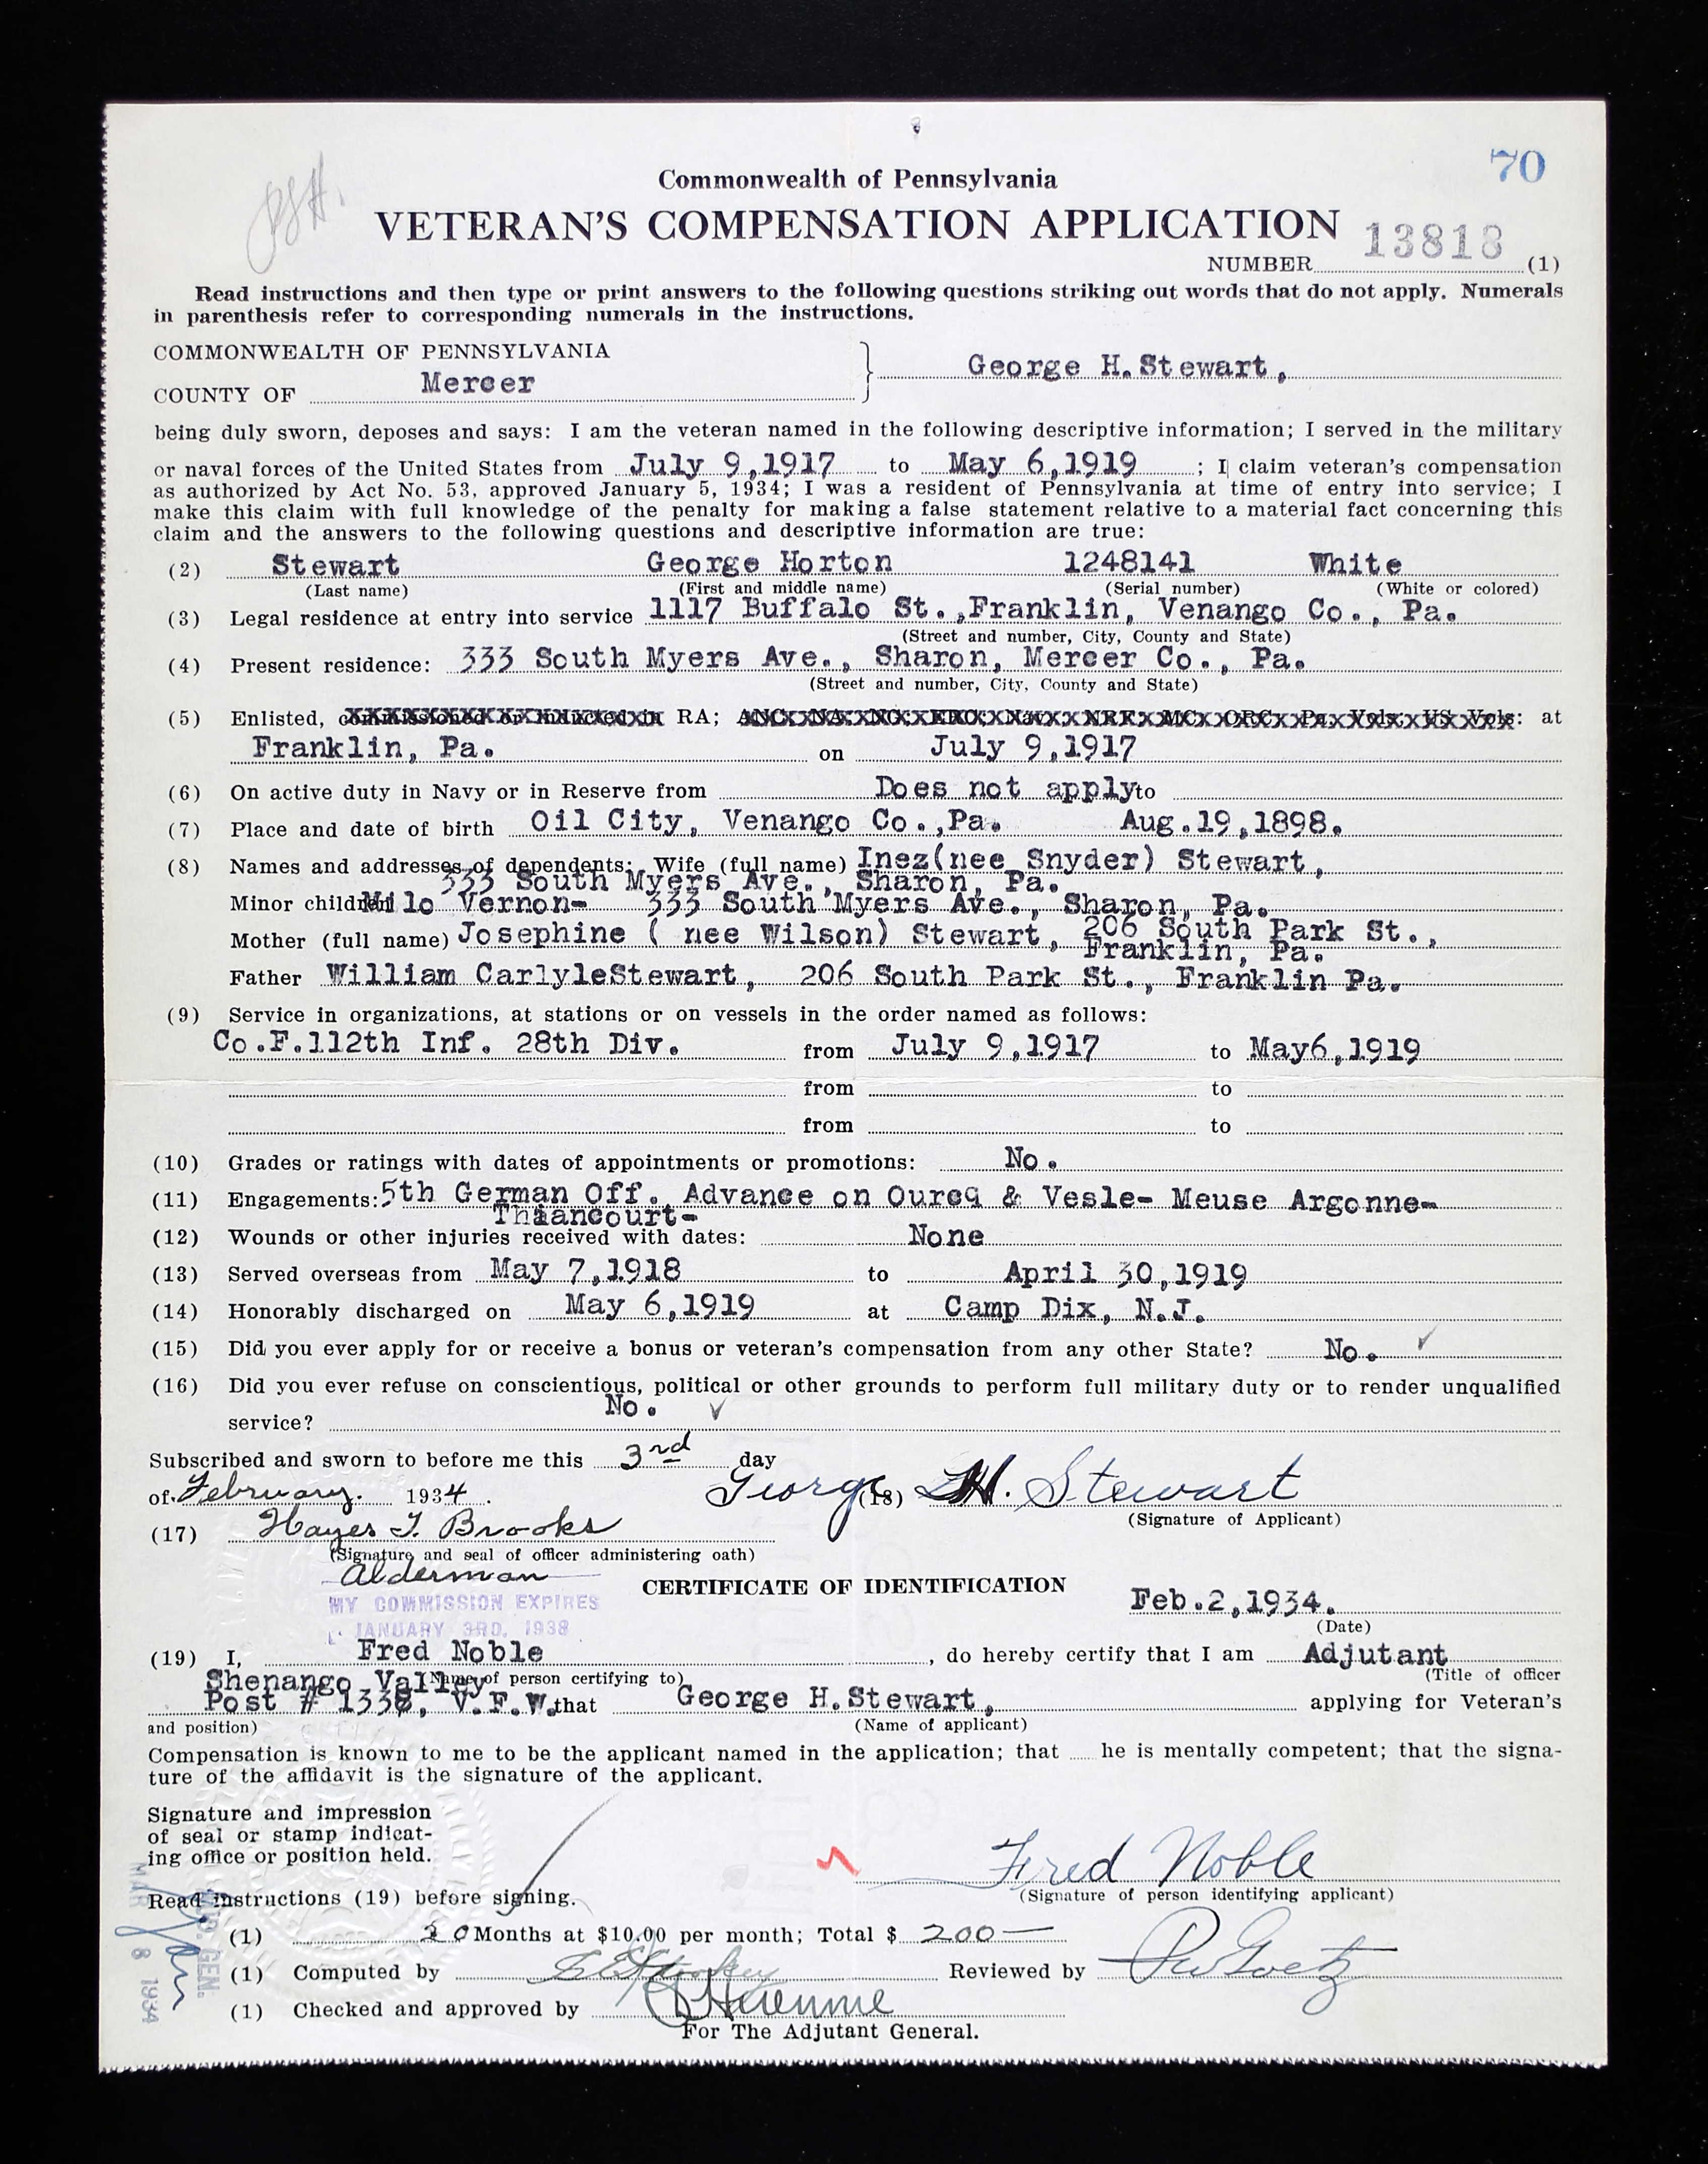 70
Commonwealth of Pennsylvania
VETERAN'S COMPENSATION APPLICATION
NUMBER 13818 (1)
Read instructions and then type or print answers to the following questions striking out words that do not apply. Numerals
in parenthesis refer to corresponding numerals in the instructions.
COMMONWEALTH OF PENNSYLVANIA
COUNTY OF Mercer } George H. Stewart,
being duly sworn, deposes and says: I am the veteran named in the following descriptive information; I served in the military
or naval forces of the United States from July 9,1917 to May 6,1919 ; I claim veteran's compensation
as authorized by Act No. 53, approved January 5, 1934; I was a resident of Pennsylvania at time of entry into service; I
make this claim with full knowledge of the penalty for making a false statement relative to a material fact concerning this
claim and the answers to the following questions and descriptive information are true:
(2) Stewart George Horton 1248141 White
(Last name) (First and middle name) (Serial number) (White or colored)
(3) Legal residence at entry into service 1117 Buffalo St.,Franklin, Venango Co., Pa.
(Street and number, City, County and State)
(4) Present residence: 333 South Myers Ave., Sharon, Mercer Co., Pa.
(Street and number, City, County and State)
(5) Enlisted, commissioned or inducted in RA; ANC; NA; NG; ERC; Navy; NRF; MC; ORC; Pa. Vols; US Vols: at
Franklin, Pa. on July 9,1917
(6) On active duty in Navy or in Reserve from Does not apply to
(7) Place and date of birth Oil City, Venango Co.,Pa. Aug.19,1898.
(8) Names and addresses of dependents: Wife (full name) Inez(nee Snyder) Stewart,
333 South Myers Ave., Sharon, Pa.
Minor children Milo Vernon- 333 South Myers Ave., Sharon, Pa.
Mother (full name) Josephine ( nee Wilson) Stewart, 206 South Park St.,
Franklin, Pa.
Father William CarlyleStewart, 206 South Park St., Franklin Pa.
(9) Service in organizations, at stations or on vessels in the order named as follows:
Co.F.112th Inf. 28th Div. from July 9,1917 to May6,1919
from to
from to
(10) Grades or ratings with dates of appointments or promotions: No.
(11) Engagements: 5th German Off. Advance on Ourcq & Vesle- Meuse Argonne-
Thiancourt-
(12) Wounds or other injuries received with dates: None
(13) Served overseas from May 7,1918 to April 30,1919
(14) Honorably discharged on May 6,1919 at Camp Dix, N.J.
(15) Did you ever apply for or receive a bonus or veteran's compensation from any other State? No.
(16) Did you ever refuse on conscientious, political or other grounds to perform full military duty or to render unqualified
service? No.
Subscribed and sworn to before me this 3rd day
of February. 1934.
George H. Stewart (18)
(Signature of Applicant)
(17) Hayes T. Brooks
(Signature and seal of officer administering oath)
Alderman
MY COMMISSION EXPIRES
JANUARY 3RD, 1938
CERTIFICATE OF IDENTIFICATION
Feb.2,1934.
(Date)
(19) I, Fred Noble , do hereby certify that I am Adjutant
(Name of person certifying to) (Title of officer
Shenango Valley
Post # 1338, V.F.W. that George H.Stewart, applying for Veteran's
and position) (Name of applicant)
Compensation is known to me to be the applicant named in the application; that he is mentally competent; that the signa-
ture of the affidavit is the signature of the applicant.
Signature and impression
of seal or stamp indicat-
ing office or position held.
Fred Noble
(Signature of person identifying applicant)
Read instructions (19) before signing.
(1) 20 Months at $10.00 per month; Total $ 200—
(1) Computed by Reviewed by
(1) Checked and approved by
For The Adjutant General.
MAR 8 1934